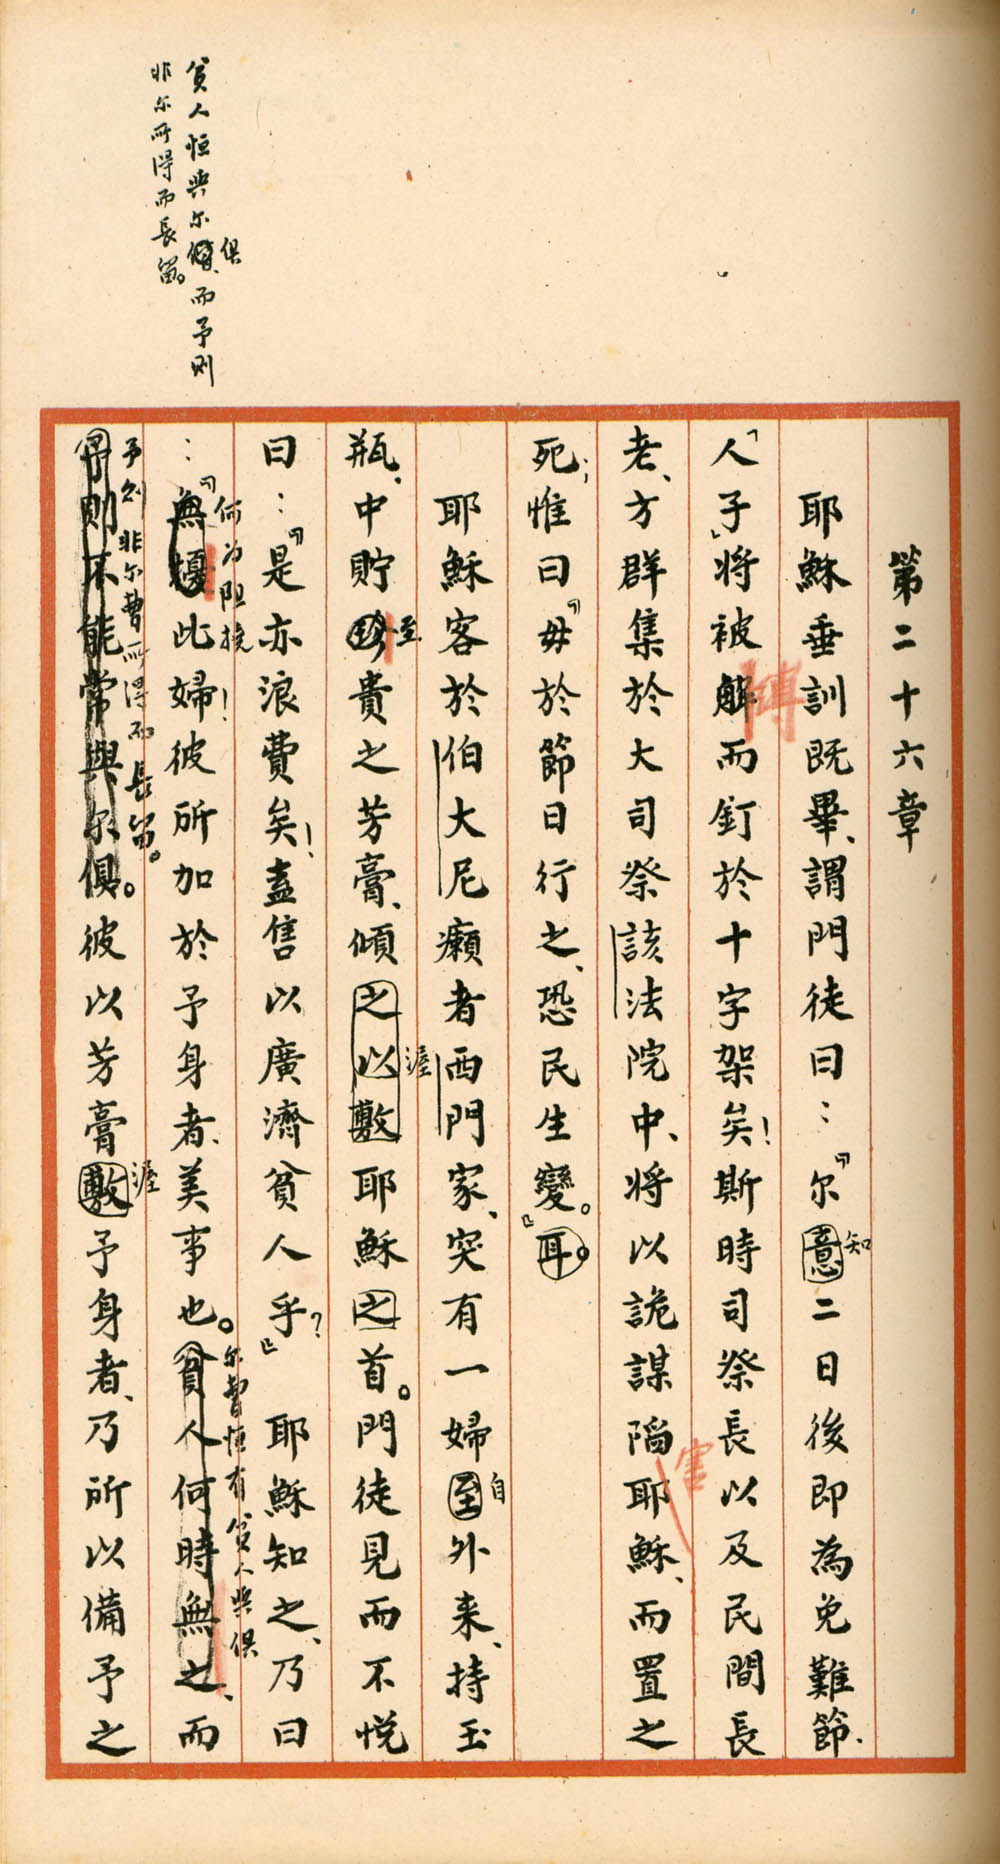 第二十六章
耶穌垂訓既畢、謂門徒曰：『尔意二日後即為免難節、
知
「人子」將被解而釘於十字架矣！斯時司祭長以及民間長
縛
老、方群集於大司祭該法院中、將以詭謀陷耶穌、而置之
害
死；惟曰『毋於節日行之、恐民生變。』耳。
耶穌客於伯大尼癩者西門家、突有一婦至外來、持玉
自
瓶、中貯珍貴之芳膏、傾之以敷耶穌之首。門徒見而不悅
至
渥
曰：『是亦浪費矣！盍售以廣濟貧人乎？』耶穌知之、乃曰
：『無擾此婦！彼所加於予身者、美事也。貧人何時無之、而
何為阻撓
尔曹恒有貧人與俱
予則不能常與尔俱。彼以芳膏敷予身者、乃所以備予之
予則非尔曹所得而長留。
渥
貧人恒與尔俱而予則
俱
非尔所得而長留。